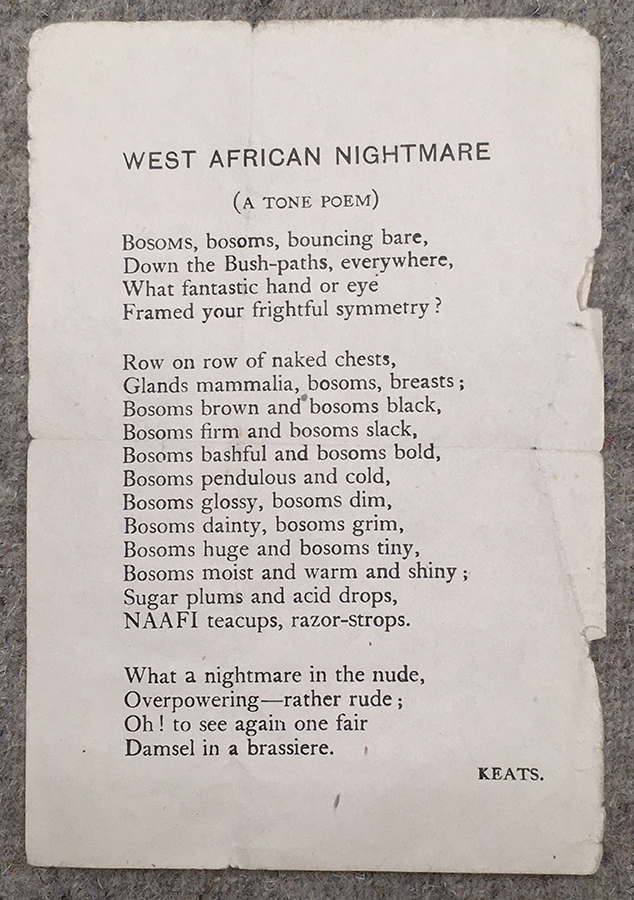 WEST AFRICAN NIGHTMARE
(A TONE POEM)
BOSOMS, bosoms, bouncing bare,
Down the Bush-paths, everywhere,
What fantastic hand or eye
Framed your frightful symmetry ?
Row on row of naked chests,
Glands mammalia, bosoms, breasts ;
Bosoms brown and bosoms black,
Bosoms firm and bosoms slack,
Bosoms bashful and bosoms bold,
Bosoms pendulous and cold,
Bosoms glossy, bosoms dim,
Bosoms dainty, bosoms grim,
Bosoms huge and bosoms tiny,
Bosoms moist and warm and shiny ;
Sugar plums and acid drops,
NAAFI teacups, razor-strops.
What a nightmare in the nude,
Overpowering—rather rude ;
Oh ! to see again one fair
Damsel in a brassiere.
KEATS.